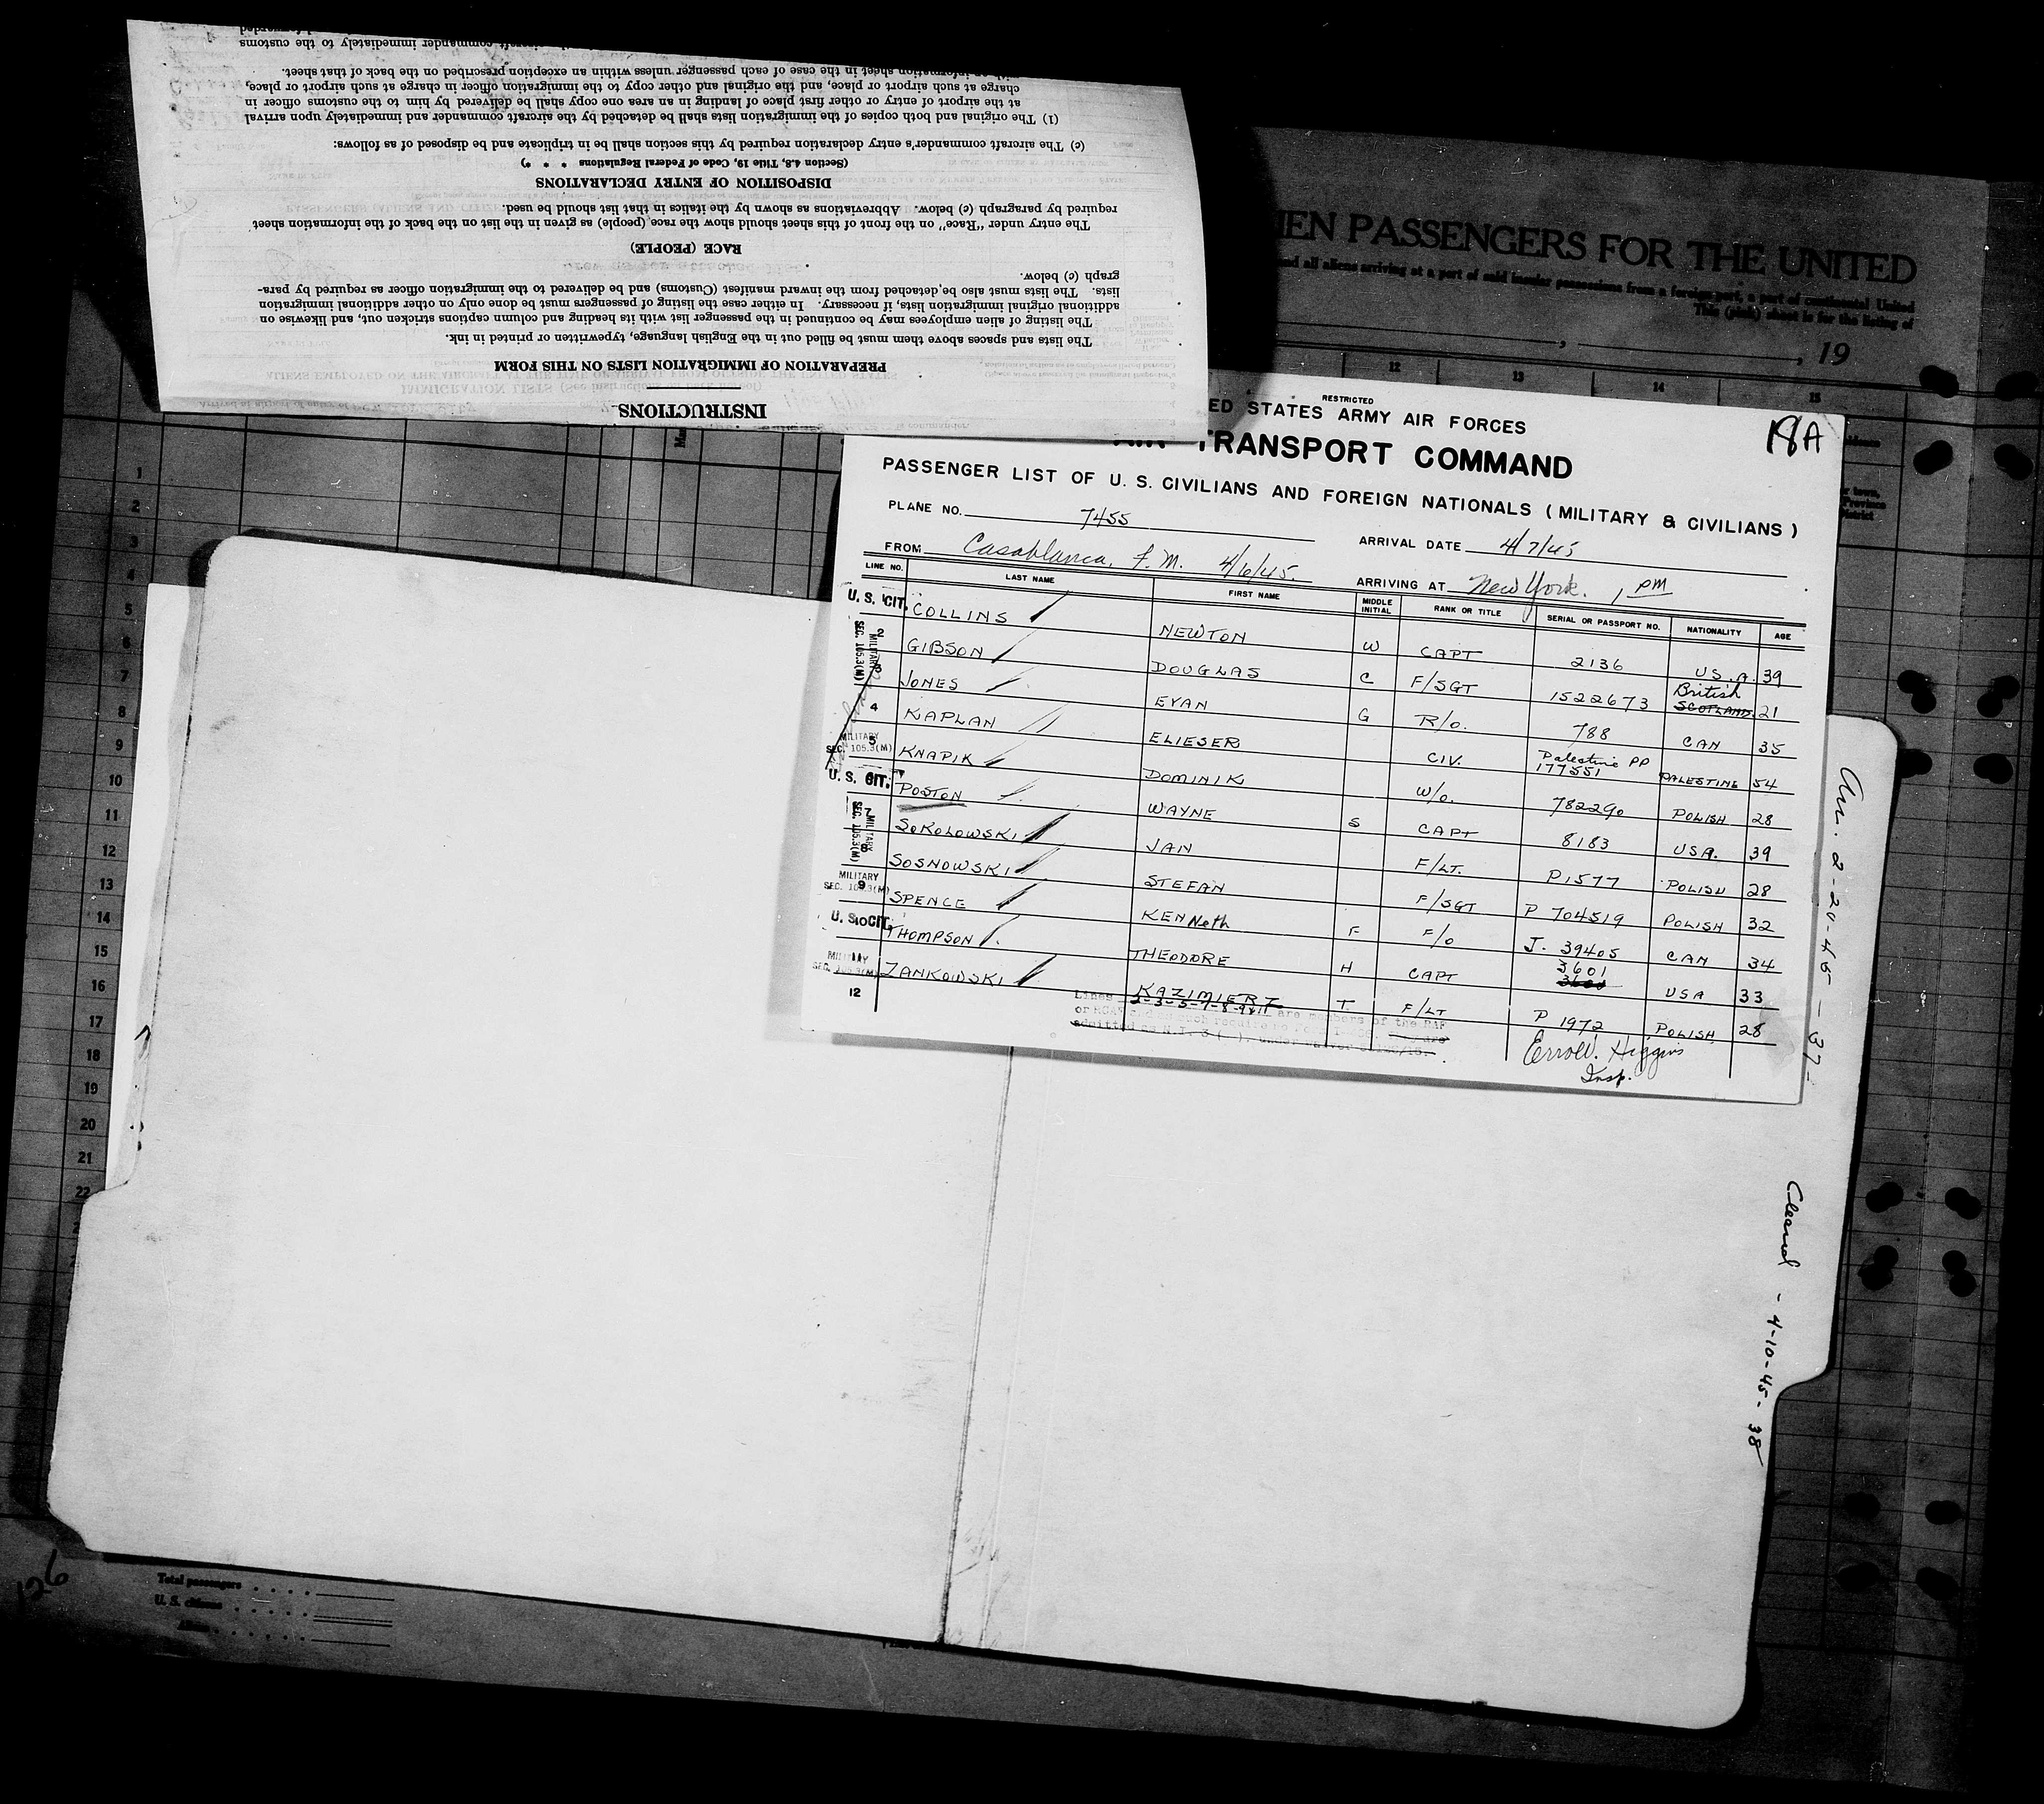 forwarded
craft commander immediately to the customs
with an information sheet in the case of each passenger unless within an exception prescribed on the back of that sheet.
charge at such airport or place, and the original and other copy to the immigration officer in charge at such airport or place,
at the airport of entry or other first place of landing in an area one copy shall be delivered by him to the customs officer in
(1) The original and both copies of the immigration lists shall be detached by the aircraft commander and immediately upon arrival
(c) The aircraft commander's entry declaration required by this section shall be in triplicate and be disposed of as follows:
(Section 4.8, Title 19, Code of Federal Regulations * * *)
DISPOSITION OF ENTRY DECLARATIONS
required by paragraph (c) below. Abbreviations as shown by the italics in that list should be used.
The entry under "Race" on the front of this sheet should show the race (people) as given in the list on the back of the information sheet
RACE (PEOPLE)
graph (c) below.
lists. The lists must also be detached from the inward manifest (Customs) and be delivered to the immigration officer as required by para-
additional original immigration lists, if necessary. In either case the listing of passengers must be done only on other additional immigration
The listing of alien employees may be continued in the passenger list with its heading and column captions stricken out, and likewise on
The lists and spaces above them must be filled out in the English language, typewritten or printed in ink.
PREPARATION OF IMMIGRATION LISTS ON THIS FORM
INSTRUCTIONS
IEN PASSENGERS FOR THE UNITED
and all aliens arriving at a port of said insular possessions from a foreign port, a port of continental United
This (pink) sheet is for the listing of
, 19
12 13 14 15
RESTRICTED
ED STATES ARMY AIR FORCES
18A
TRANSPORT COMMAND
PASSENGER LIST OF U. S. CIVILIANS AND FOREIGN NATIONALS (MILITARY & CIVILIANS)
PLANE NO. 7455
ARRIVAL DATE 4/7/45
FROM Casablanca, F.M. 4/6/45.
ARRIVING AT New York. , PM
LINE NO. LAST NAME FIRST NAME MIDDLE INITIAL RANK OR TITLE SERIAL OR PASSPORT NO. NATIONALITY AGE
U. S. CIT. COLLINS NEWTON W CAPT 2136 U.S.A. 39
2 GIBSON DOUGLAS C F/SGT 1522673 British SCOTLAND 21
3 JONES EVAN G R/O. 788 CAN 35
4 KAPLAN ELIESER CIV. Palestine PP 177551 PALESTINE 54
5 KNAPIK DOMINIK W/O. 782290 POLISH 28
U. S. CIT. POSTON WAYNE S CAPT 8183 USA. 39
7 SOKOLOWSKI JAN F/LT. P1577 POLISH 28
8 SOSNOWSKI STEFAN F/SGT P 704519 POLISH 32
9 SPENCE KENNeth F F/O J. 39405 CAN 34
U. S. 10 CIT. THOMPSON THEODORE H CAPT 3601 USA 33
11 ZANKOWSKI KAZIMIERZ T. F/LT P 1972 POLISH 28
12
MILITARY
SEC. 105.3(M)
MILITARY
SEC. 105.3(M)
MILITARY
SEC. 105.3(M)
MILITARY
SEC. 105.3(M)
MILITARY
SEC. 105.3(M)
Lines 2-3-5-7-8-9&11 are members of the RAF
or RCAF
Errol. Higgins
Insp.
2-20-45 - 37-
Cleared - 4-10-45- 38
1
2
3
4
5
6
7
8
9
10
11
12
13
14
15
16
17
18
19
20
21
22
126
Total passengers
U. S. citizens
Aliens